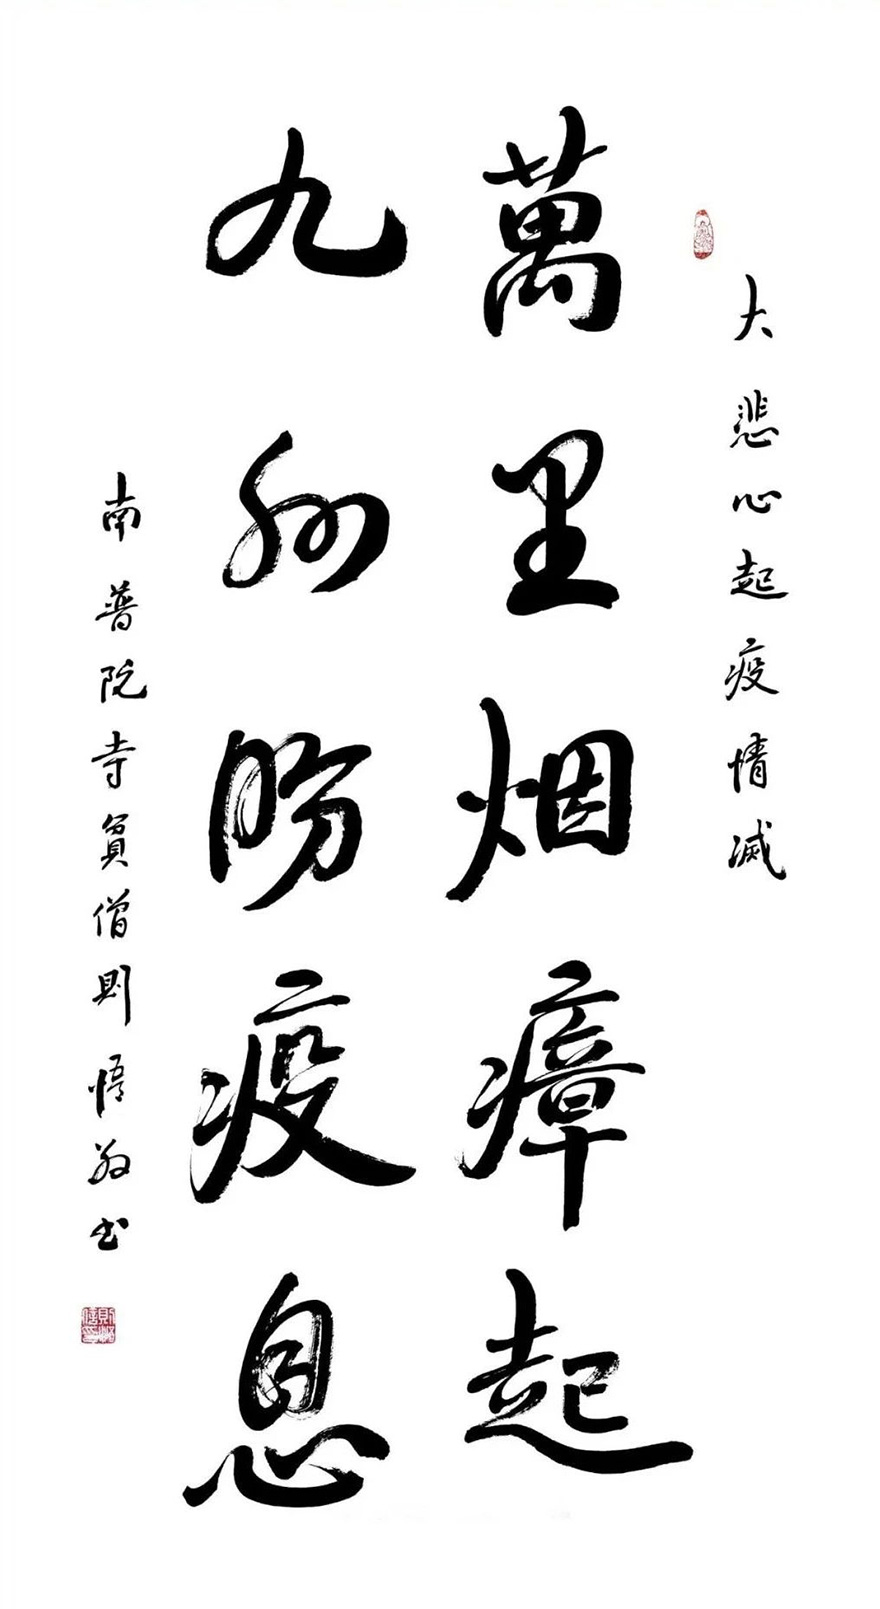 大悲心起疫情滅
萬里烟瘴起
九州盼疫息
南普陀寺貧僧則悟敬书